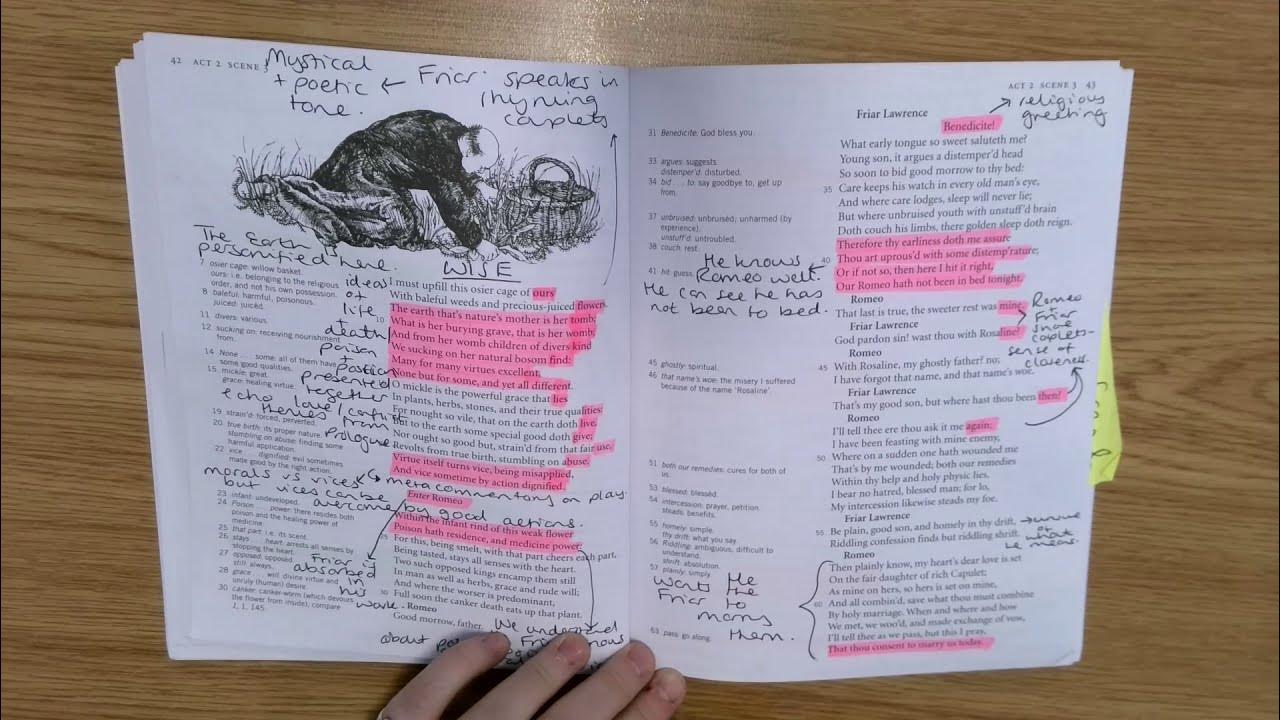 42 ACT 2 SCENE 3
Mystical
+ poetic ← Friar speaks in
tone. rhyming
couplets
The Earth is
personified here.
WISE
ideas
of
life
+
death
poison
+
presented
together
echo love/
themes from
Prologue
morals vs vices
but vices can be
overcome by good actions.
metacommentary on play.
Friar is
absorbed
in
his
work
We understand
about
7 osier cage: willow basket.
ours: i.e. belonging to the religious
order, and not his own possession.
8 baleful: harmful, poisonous.
juiced: juicèd.
11 divers: various.
12 sucking on: receiving nourishment
from.
14 None . . . some: all of them have
some good qualities.
15 mickle: great.
grace: healing virtue.
19 strain'd: forced, perverted.
20 true birth: its proper nature.
stumbling on abuse: finding some
harmful application.
22 vice . . . dignified: evil sometimes
made good by the right action.
23 infant: undeveloped.
24 Poison . . . power: there resides both
poison and the healing power of
medicine.
25 that part: i.e. its scent.
26 stays . . . heart: arrests all senses by
stopping the heart.
27 opposed: opposèd.
still: always.
28 grace . . . will: divine virtue and
unruly (human) desire.
30 canker: canker-worm (which devours
the flower from inside); compare
1, 1, 145.
I must upfill this osier cage of ours
With baleful weeds and precious-juiced flowers.
The earth that's nature's mother is her tomb;
10 What is her burying grave, that is her womb;
And from her womb children of divers kind
We sucking on her natural bosom find:
Many for many virtues excellent,
None but for some, and yet all different.
O mickle is the powerful grace that lies
In plants, herbs, stones, and their true qualities:
For nought so vile, that on the earth doth live,
But to the earth some special good doth give;
Nor ought so good but, strain'd from that fair use,
Revolts from true birth, stumbling on abuse.
Virtue itself turns vice, being misapplied,
And vice sometime by action dignified.
Enter Romeo
Within the infant rind of this weak flower
Poison hath residence, and medicine power:
For this, being smelt, with that part cheers each part,
Being tasted, stays all senses with the heart.
Two such opposed kings encamp them still
In man as well as herbs, grace and rude will;
And where the worser is predominant,
30 Full soon the canker death eats up that plant.
Romeo
Good morrow, father.
ACT 2 SCENE 3 43
→ religious
greeting
31 Benedicite: God bless you.
33 argues: suggests.
distemper'd: disturbed.
34 bid . . . to: say goodbye to, get up
from.
37 unbruised: unbruisèd; unharmed (by
experience).
unstuff'd: untroubled.
38 couch: rest.
41 hit: guess.
He knows
Romeo well.
He can see he has
not been to bed.
45 ghostly: spiritual.
46 that name's woe: the misery I suffered
because of the name 'Rosaline'.
51 both our remedies: cures for both of
us.
53 blessed: blessèd.
54 intercession: prayer, petition.
steads: benefits.
55 homely: simple.
thy drift: what you say.
56 Riddling: ambiguous, difficult to
understand.
shrift: absolution.
57 plainly: simply.
He
wants the
Friar to
marry
them.
63 pass: go along.
Friar Lawrence
Benedicite!
What early tongue so sweet saluteth me?
Young son, it argues a distemper'd head
So soon to bid good morrow to thy bed:
35 Care keeps his watch in every old man's eye,
And where care lodges, sleep will never lie;
But where unbruised youth with unstuff'd brain
Doth couch his limbs, there golden sleep doth reign.
Therefore thy earliness doth me assure
40 Thou art uprous'd with some distemp'rature;
Or if not so, then here I hit it right,
Our Romeo hath not been in bed tonight.
Romeo
That last is true, the sweeter rest was mine.
Friar Lawrence
God pardon sin! wast thou with Rosaline?
Romeo
45 With Rosaline, my ghostly father? no;
I have forgot that name, and that name's woe.
Friar Lawrence
That's my good son, but where hast thou been then?
Romeo
I'll tell thee ere thou ask it me again:
I have been feasting with mine enemy,
50 Where on a sudden one hath wounded me
That's by me wounded; both our remedies
Within thy help and holy physic lies.
I bear no hatred, blessed man; for lo,
My intercession likewise steads my foe.
Friar Lawrence
55 Be plain, good son, and homely in thy drift,
Riddling confession finds but riddling shrift.
Romeo
Then plainly know, my heart's dear love is set
On the fair daughter of rich Capulet;
As mine on hers, so hers is set on mine,
60 And all combin'd, save what thou must combine
By holy marriage. When and where and how
We met, we woo'd, and made exchange of vow,
I'll tell thee as we pass, but this I pray,
That thou consent to marry us today.
Romeo
+
Friar
share
couplets -
sense of
closeness.
→ unsure
of what
he means.